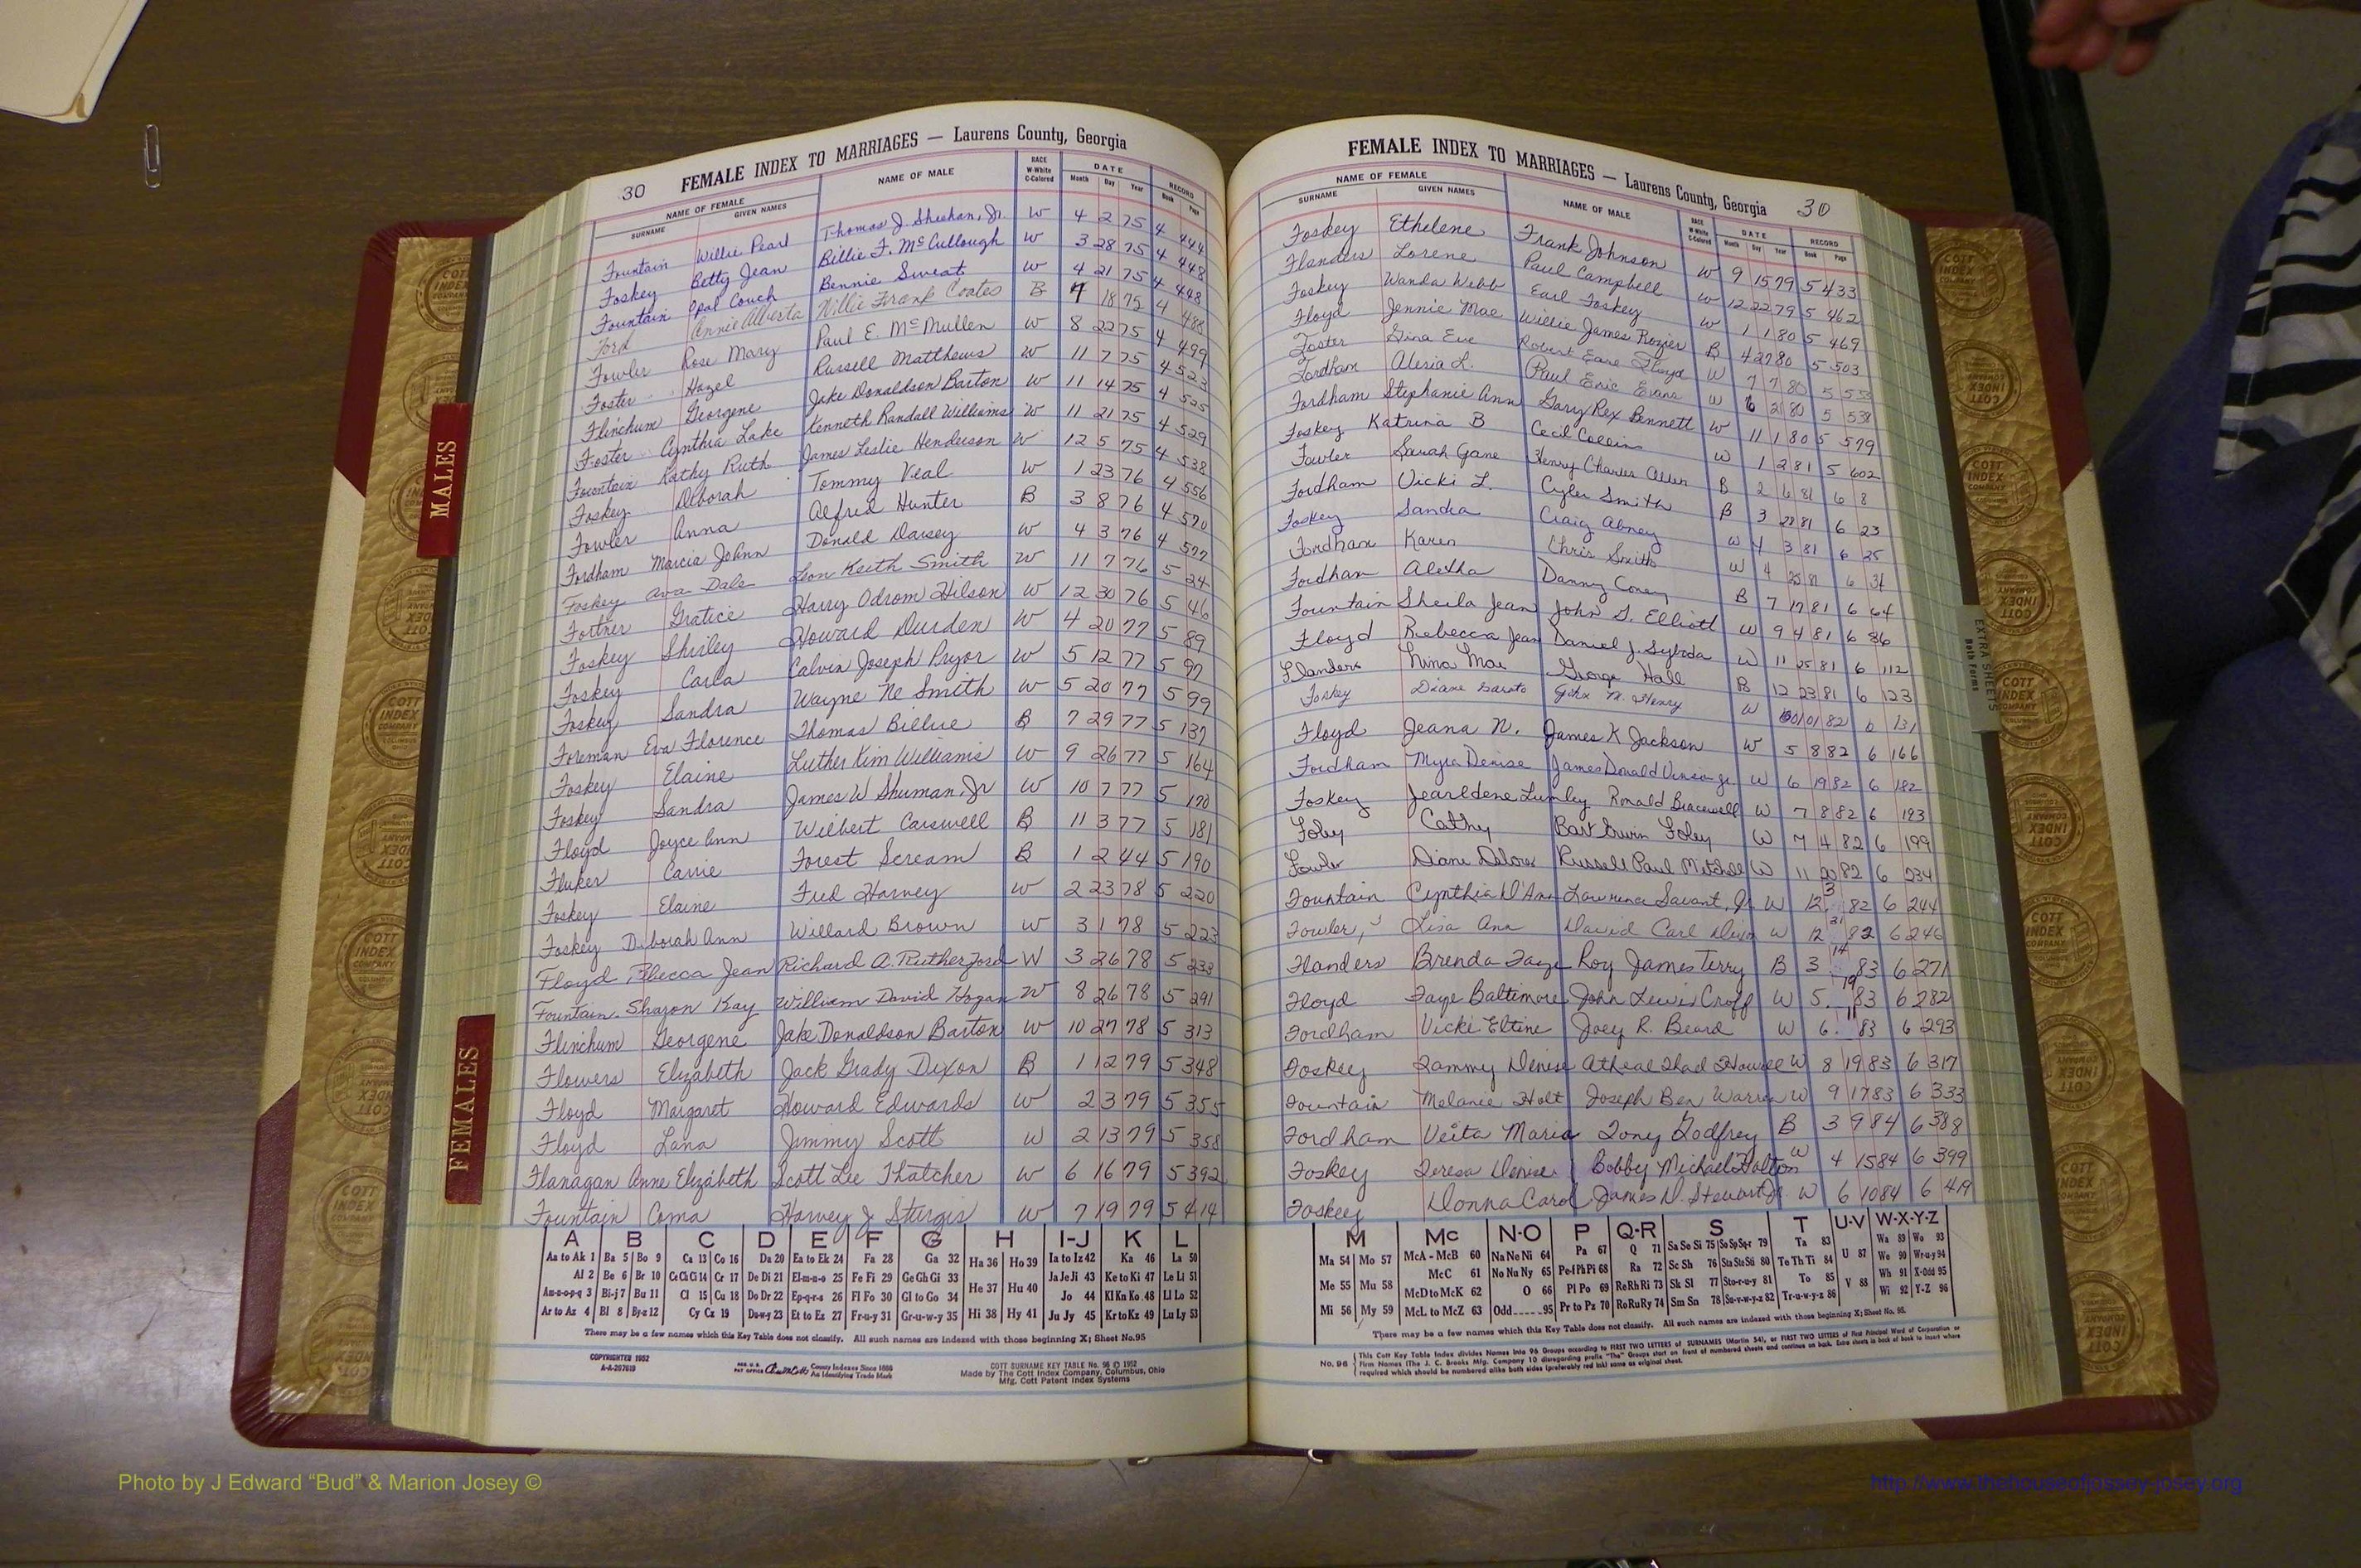 30 FEMALE INDEX TO MARRIAGES — Laurens County, Georgia
NAME OF FEMALE NAME OF MALE RACE W-White C-Colored DATE RECORD
SURNAME GIVEN NAMES Month Day Year Book Page
Fountain Willie Pearl Thomas J Sheehan, Jr. W 4 2 75 4 444
Foskey Betty Jean Billie F. McCullough W 3 28 75 4 448
Fountain Opal Couch Bennie Sweat W 4 21 75 4 448
Ford Annie Alberta Willie Frank Coates B 7 18 75 4 488
Fowler Rose Mary Paul E. McMullen W 8 22 75 4 499
Foster Hazel Russell Matthews W 11 7 75 4 523
Flinchum Georgene Jake Donaldson Barton W 11 14 75 4 525
Foster Cynthia Lake Kenneth Randall Williams W 11 21 75 4 529
Fountain Kathy Ruth James Leslie Henderson W 12 5 75 4 538
Foskey Deborah Tommy Veal W 1 23 76 4 556
Fowler Anna Alfred Hunter B 3 8 76 4 570
Fordham Marcia JoAnn Donald Darsey W 4 3 76 4 577
Foskey Ava Dale Leon Keith Smith W 11 7 76 5 24
Fortner Gratice Harry Odrom Hilson W 12 30 76 5 46
Foskey Shirley Howard Durden W 4 20 77 5 89
Foskey Carla Calvin Joseph Pryor W 5 12 77 5 97
Foskey Sandra Wayne Ne Smith W 5 20 77 5 99
Foreman Eva Florence Thomas Billue B 7 29 77 5 137
Foskey Elaine Luther Kim Williams W 9 26 77 5 164
Foskey Sandra James W Shuman, Jr W 10 7 77 5 170
Floyd Joyce Ann Wilbert Carswell B 11 3 77 5 181
Fluker Carrie Forest Scream B 1 2 44 5 190
Foskey Elaine Fred Harvey W 2 23 78 5 220
Foskey Deborah Ann Willard Brown W 3 1 78 5 223
Floyd, Rebecca Jean Richard A. Rutherford W 3 26 78 5 233
Fountain Sharon Kay William David Hogan W 8 26 78 5 291
Flinchum Georgene Jake Donaldson Barton W 10 27 78 5 313
Flowers Elizabeth Jack Grady Dixon B 1 12 79 5 348
Floyd Margaret Howard Edwards W 2 3 79 5 355
Floyd Lana Jimmy Scott W 2 13 79 5 358
Flanagan Anne Elizabeth Scott Lee Thatcher W 6 16 79 5 392
Fountain Coma Harvey J Sturgis W 7 19 79 5 414
A B C D E F G H I-J K L
Aa to Ak 1 Ba 5 Bo 9 Ca 13 Co 16 Da 20 Ea to Ek 24 Fa 28 Ga 32 Ha 36 Ho 39 Ia to Iz 42 Ka 46 La 50
Al 2 Be 6 Br 10 Ce Ch Ci 14 Cr 17 De Di 21 El-m-n-o 25 Fe Fi 29 Ge Gh Gi 33 He 37 Hu 40 Ja Je Ji 43 Ke to Ki 47 Le Li 51
Am-n-o-p-q 3 Bi-j 7 Bu 11 Cl 15 Cu 18 Do Dr 22 Ep-q-r-s 26 Fl Fo 30 Gl to Go 34 Hi 38 Hy 41 Jo 44 Kl Kn Ko 48 Ll Lo 52
Ar to Az 4 Bl 8 By-z 12 Cy Cz 19 Du-w-y 23 Et to Ez 27 Fr-u-y 31 Gr-u-w-y 35 Ju Jy 45 Kr to Kz 49 Lu Ly 53
There may be a few names which this Key Table does not classify. All such names are indexed with those beginning X; Sheet No. 95
COPYRIGHTED 1952
A-A-207619
REG. U.S. PAT OFFICE County Indexes Since 1888 An Identifying Trade Mark
COTT SURNAME KEY TABLE No. 96 © 1952
Made by The Cott Index Company, Columbus, Ohio
Mfg. Cott Patent Index Systems
FEMALE INDEX TO MARRIAGES — Laurens County, Georgia 30
NAME OF FEMALE NAME OF MALE RACE W-White C-Colored DATE RECORD
SURNAME GIVEN NAMES Month Day Year Book Page
Foskey Ethelene Frank Johnson W 9 15 79 5 433
Flanders Lorene Paul Campbell W 12 22 79 5 462
Foskey Wanda Webb Earl Foskey W 1 1 80 5 469
Floyd Jennie Mae Willie James Rozier B 4 27 80 5 503
Foster Gina Eve Robert Earl Floyd W 7 7 80 5 55
Fordham Alesia L. Paul Eric Evans W 6 21 80 5 538
Fordham Stephanie Ann Gary Rex Bennett W 11 1 80 5 579
Foskey Katrina B Cecil Collins W 1 2 81 5 602
Fowler Sarah Gane Henry Charles Allen B 2 6 81 6 8
Fordham Vicki L. Cyler Smith B 3 28 81 6 23
Foskey Sandra Craig Abney W 4 3 81 6 25
Fordham Karen Chris Smith W 4 25 81 6 31
Fordham Aletha Danny Coney B 7 17 81 6 64
Fountain Sheila Jean John S. Elliott W 9 4 81 6 86
Floyd Rebecca Jean Daniel J. Syboda W 11 25 81 6 112
Flanders Nina Mae George Hall B 12 23 81 6 123
Foskey Diane John M. Henry W 01 82 6 131
Floyd Jeana N. James K Jackson W 5 8 82 6 166
Fordham Myra Denise James Donald Vinson Jr. W 6 19 82 6 182
Foskey Jearldene Lumley Ronald Bracewell W 7 8 82 6 193
Foley Cathy Bart Erwin Foley W 7 4 82 6 199
Fowler Diane Delores Russell Paul Mitchell W 11 20 82 6 234
Fountain Cynthia D'Ann Lawrence Savant, Jr. W 12 3 82 6 244
Fowler, Lisa Ann David Carl Dixon W 12 31 82 6 246
Flanders Brenda Faye Roy James Terry B 3 14 83 6 271
Floyd Faye Baltimore John Lewis Croff W 5 19 83 6 282
Fordham Vicki Eltine Joey R. Beard W 6 11 83 6 293
Foskey Tammy Denise Atheal Thad Howell W 8 19 83 6 317
Fountain Melanie Holt Joseph Ben Warren W 9 17 83 6 333
Fordham Veita Maria Tony Godfrey B 3 9 84 6 388
Foskey Teresa Denise Bobby Michael Holton W 4 15 84 6 399
Foskey Donna Carol James D. Stewart Jr. W 6 10 84 6 419
M Mc N-O P Q-R S T U-V W-X-Y-Z
Ma 54 Mo 57 McA - McB 60 Na Ne Ni 64 Pa 67 Q 71 Sa Se Si 75 So Sp Sq-r 79 Ta 83 U 87 Wa 89 Wo 93
Me 55 Mu 58 McC 61 No Nu Ny 65 Pe-f Ph Pi 68 Ra 72 Sc Sh 76 Sta Ste Sti 80 Te Th Ti 84 V 88 We 90 Wr-u-y 94
Mi 56 My 59 McD to McK 62 O 66 Pl Po 69 Re Rh Ri 73 Sk Sl 77 Sto-r-u-y 81 To 85 Wh 91 X-Odd 95
McL to McZ 63 Odd 95 Pr to Pz 70 Ro Ru Ry 74 Sm Sn 78 Su-v-w-y-z 82 Tr-u-w-y-z 86 Wi 92 Y-Z 96
There may be a few names which this Key Table does not classify. All such names are indexed with those beginning X; Sheet No. 95.
No. 96 This Cott Key Table Index divides Names into 96 Groups according to FIRST TWO LETTERS of SURNAMES (Martin 54), or FIRST TWO LETTERS of First Principal Word of Corporation or
Firm Names (The J. C. Brooks Mfg. Company 10 disregarding prefix "The" Groups start on front of numbered sheets and continue on back. Extra sheets in back of book to insert where
required which should be numbered alike both sides (preferably red ink) same as original sheet.
MALES
FEMALES
EXTRA SHEETS
Both Forms
COTT INDEX COMPANY
Photo by J Edward “Bud” & Marion Josey ©
http://www.thehouseofjossey-josey.org